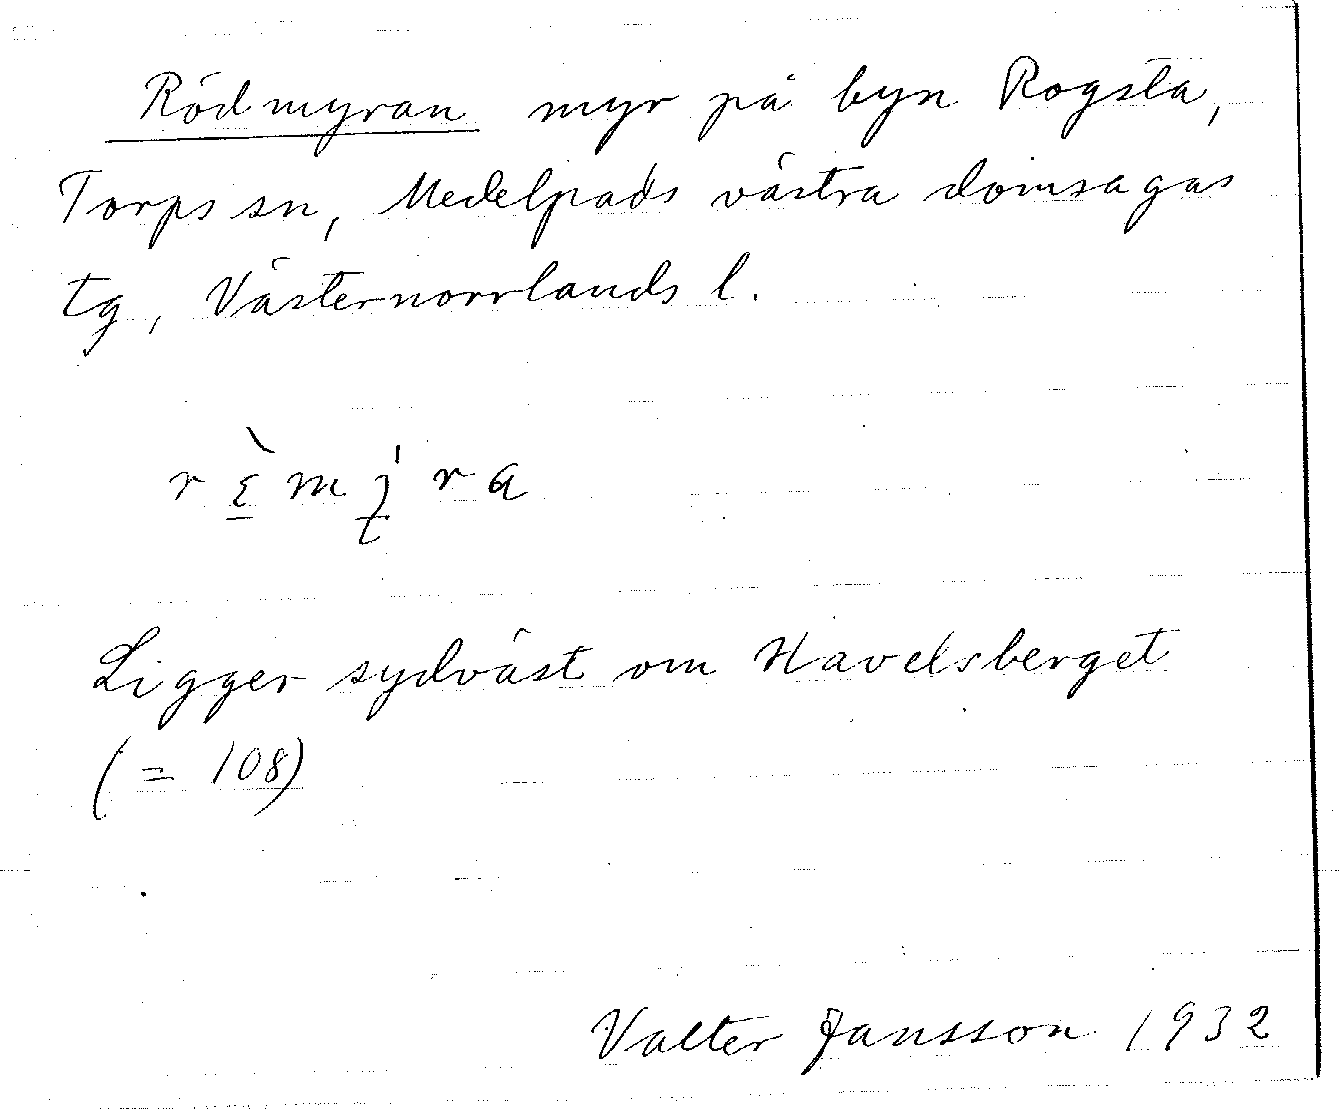 Rödmyran myr på byn Rogsta,
Torps sn, Medelpads västra domsagas
tg, Västernorrlands l.
Ligger sydväst om Havelsberget
(= 108)
Valter Jansson 1932